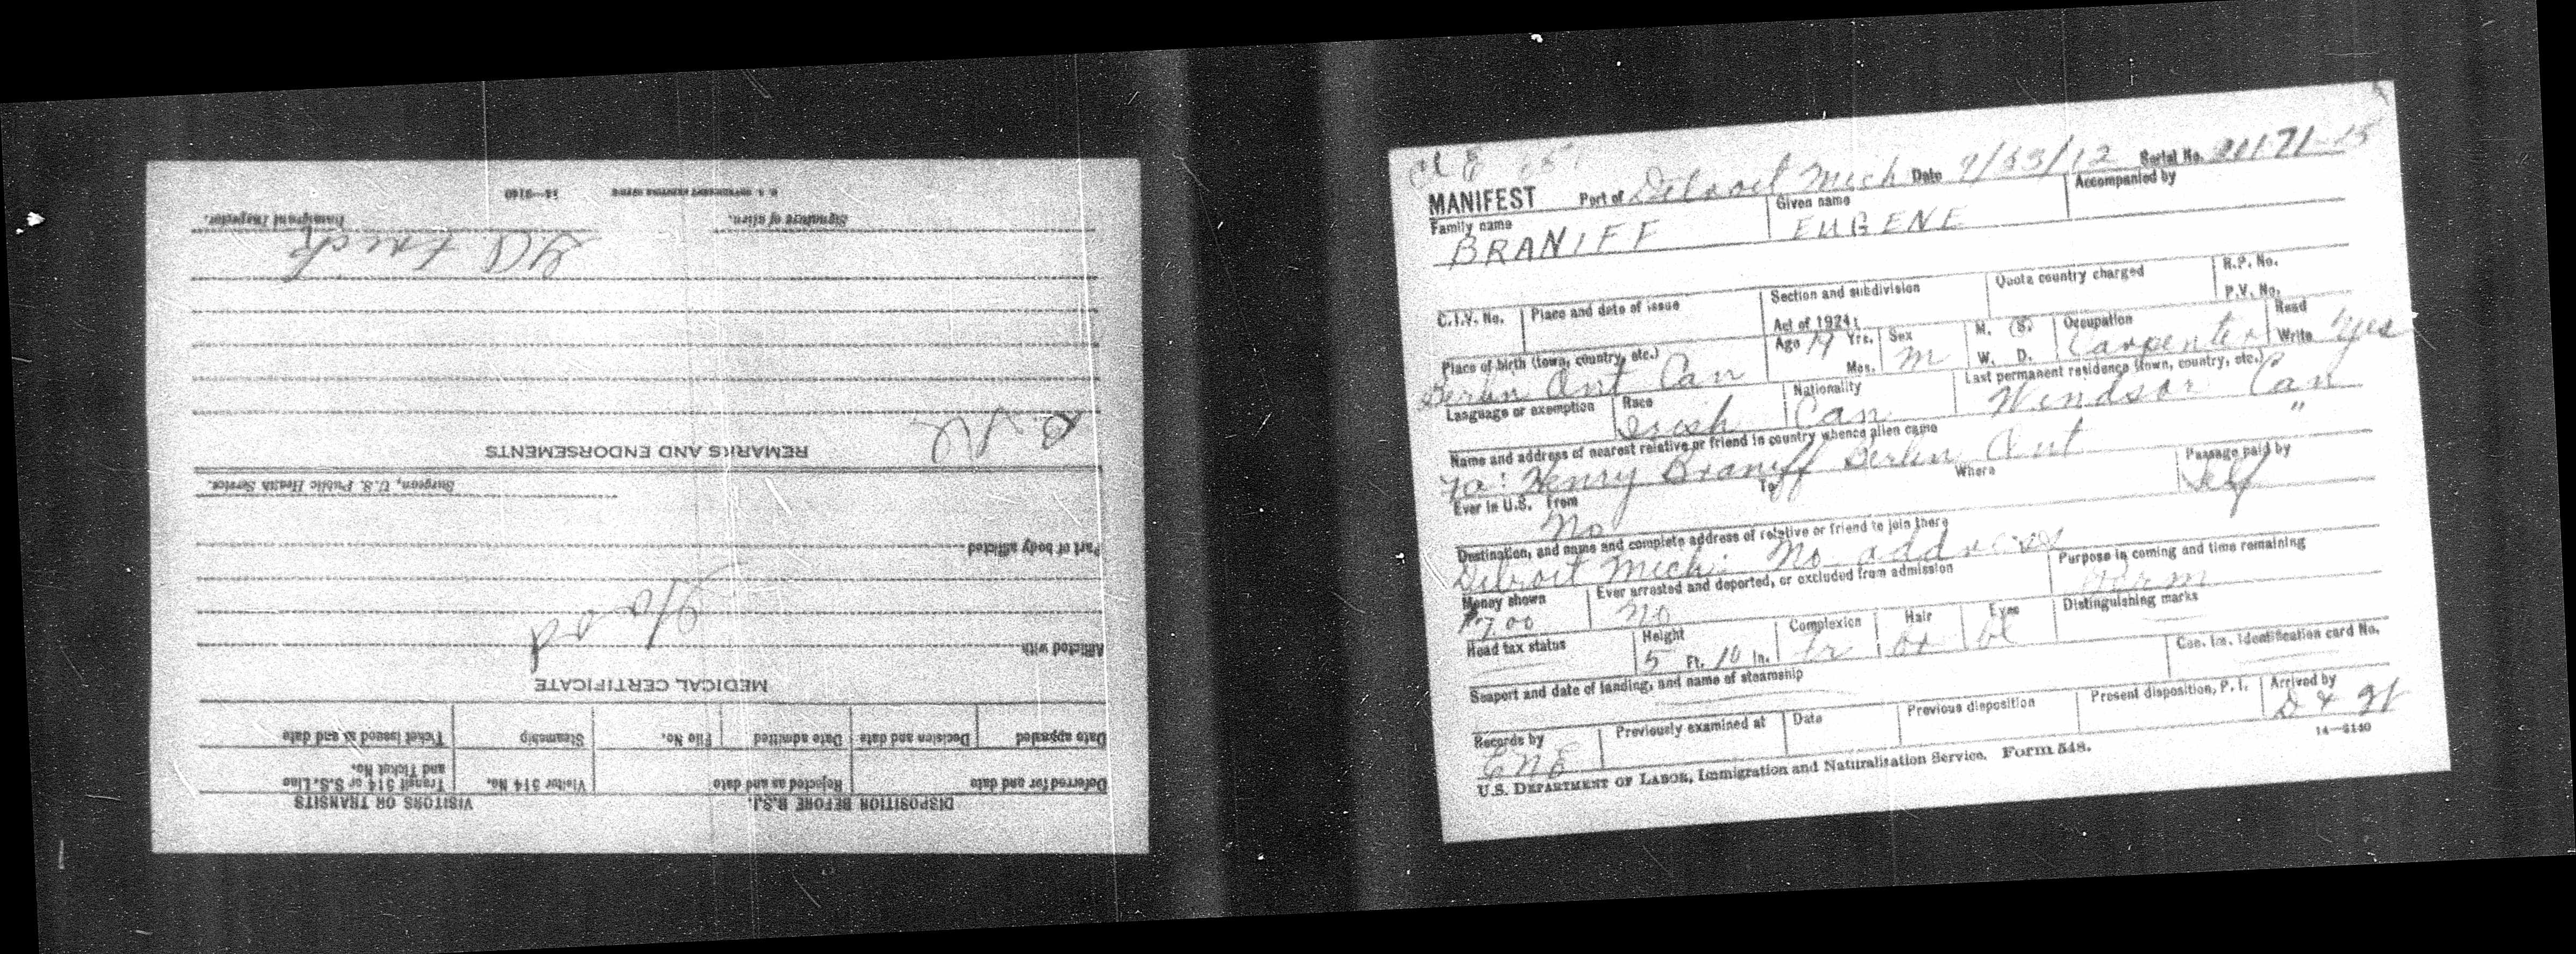 MANIFEST Port of Detroit Mich Date Serial No.
Family name Given name Accompanied by
BRANIFF EUGENE
C.I.V. No. Place and date of issue Section and subdivision Quota country charged R.P. No.
Act of 1924: P.V. No.
Place of birth (town, country, etc.) Age Yrs. Sex M. S. Occupation Read
Berlin Ont Can Mos. M W. D. Carpenter Write Yes
Language or exemption Race Nationality Last permanent residence (town, country, etc.)
Irish Can Windsor Can
Name and address of nearest relative or friend in country whence alien came "
Henry Braniff Berlin Ont
Ever in U.S. From To Where Passage paid by
No Self
Destination, and name and complete address of relative or friend to join there
Detroit Mich. No address
Purpose in coming and time remaining
Perm
Money shown Ever arrested and deported, or excluded from admission
No
Distinguishing marks
Head tax status Height Complexion Hair Eyes
5 Ft. 10 In. fr bl
Seaport and date of landing, and name of steamship Can. Im. Identification card No.
Records by Previously examined at Date Previous disposition Present disposition, P. I. Arrived by
ENE
U.S. DEPARTMENT OF LABOR, Immigration and Naturalization Service. Form 548. 14—3140
DISPOSITION BEFORE B.S.I. VISITORS OR TRANSITS
Deferred for and date Rejected as and date Visitor 514 No. Transit 514 or S.S. Line and Ticket No.
Date appealed Decision and date Date admitted File No. Steamship Ticket issued at and date
MEDICAL CERTIFICATE
Afflicted with
Part of body afflicted
Surgeon, U.S. Public Health Service.
REMARKS AND ENDORSEMENTS
Signature of alien. Immigrant Inspector.
U. S. GOVERNMENT PRINTING OFFICE 14—3140